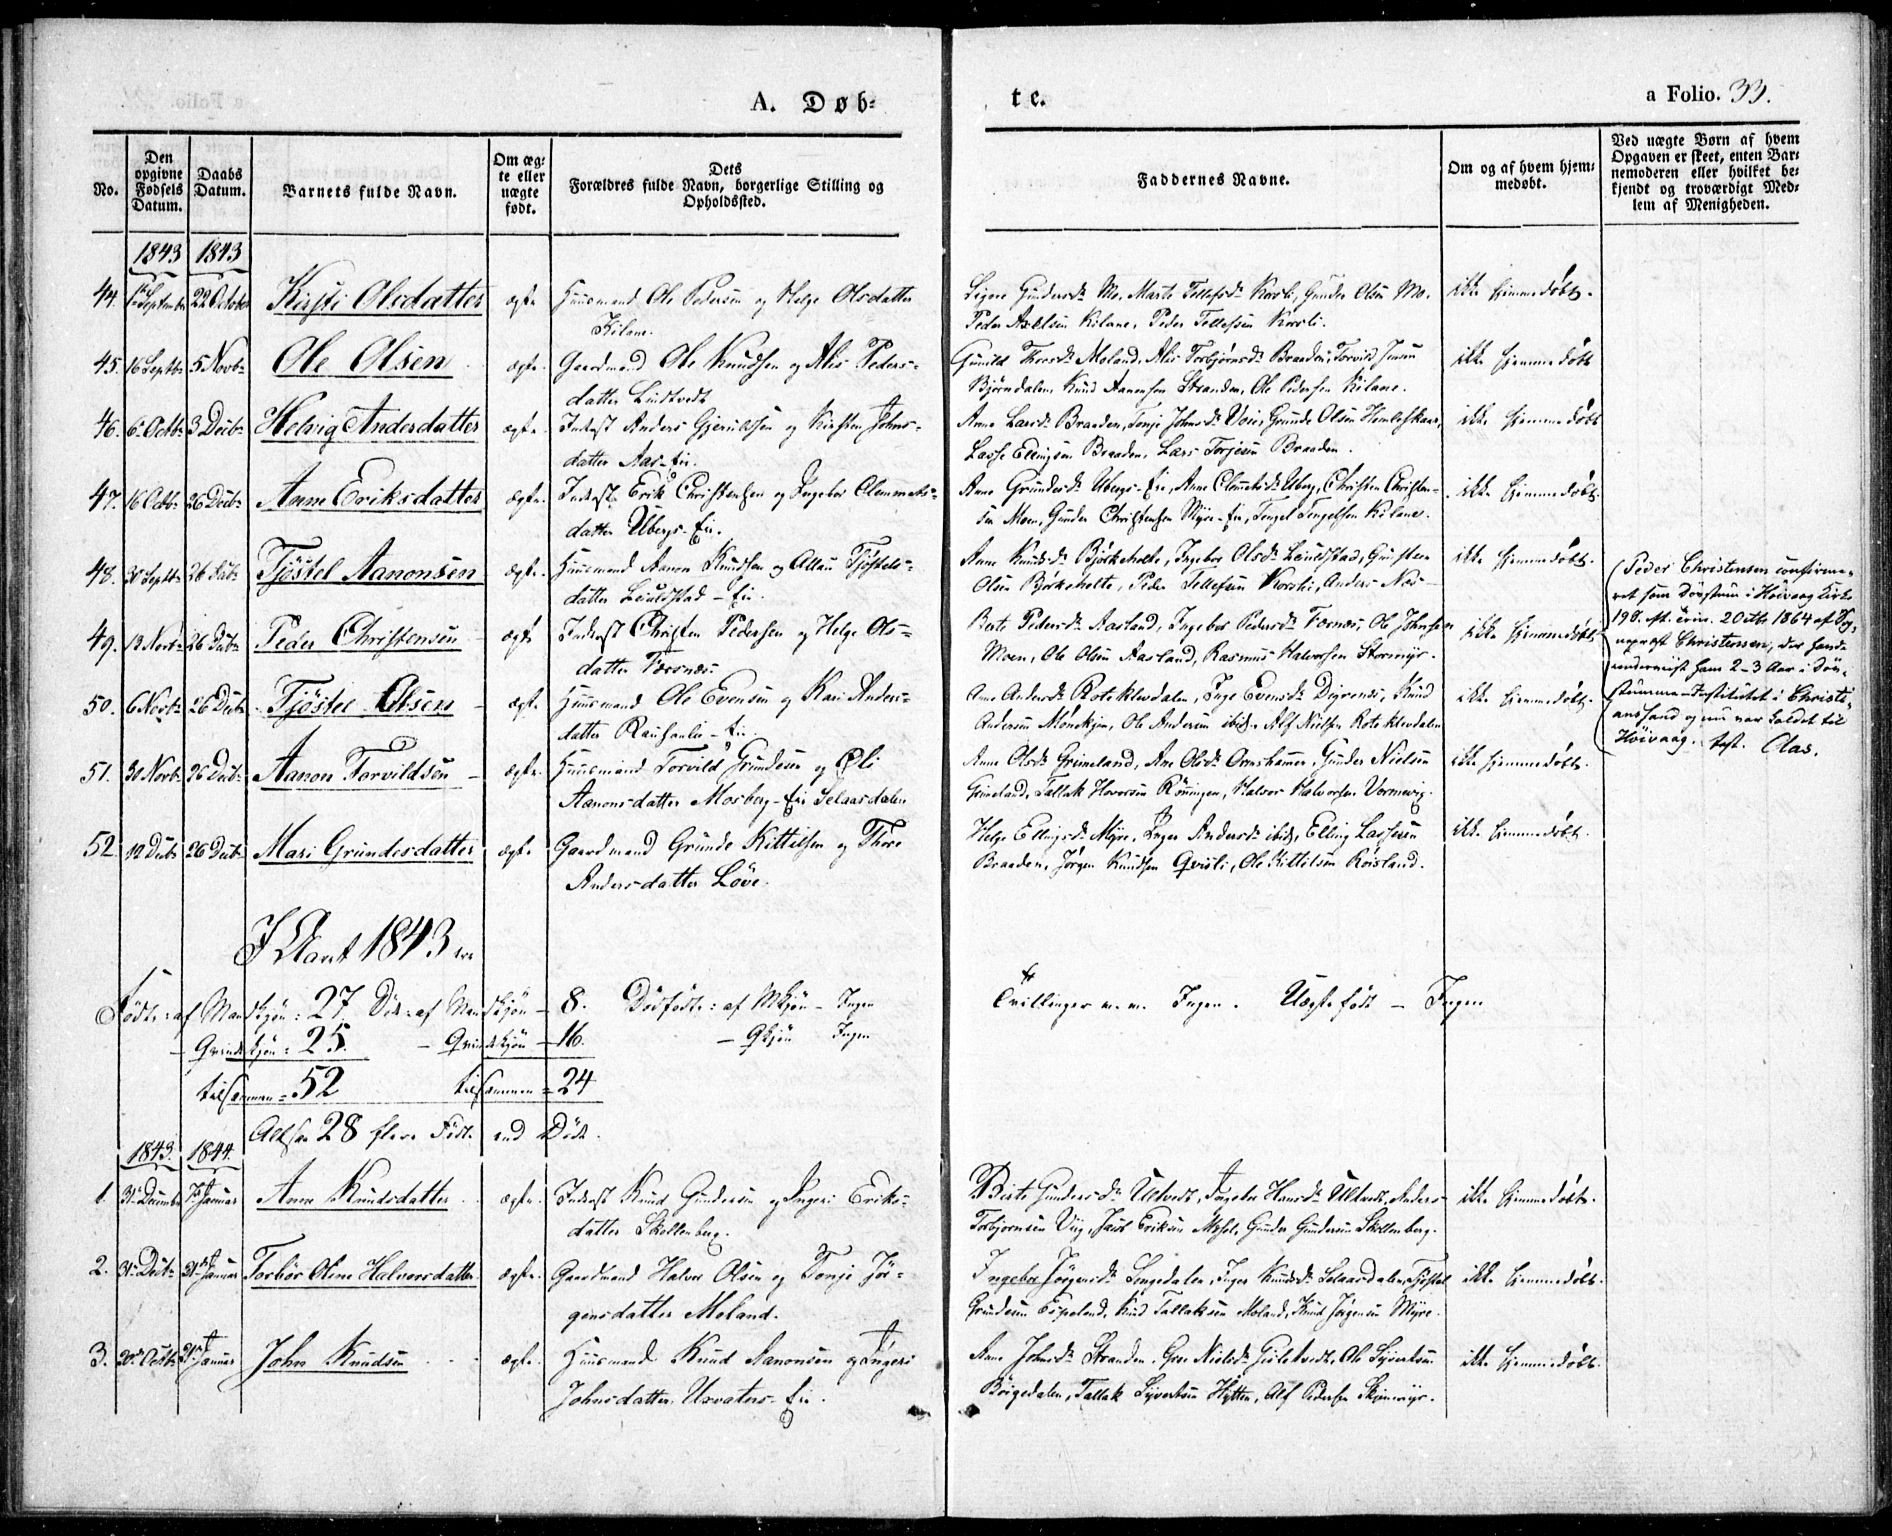 A. Døb-
te.
a Folio. 33.
No.
Den opgivne Fødsels Datum.
Daabs Datum.
Barnets fulde Navn.
Om ægte eller uægte født.
Dets Forældres fulde Navn, borgerlige Stilling og Opholdssted.
Faddernes Navne.
Om og af hvem hjemmedøbt.
Ved uægte Børn af hvem Opgaven er skeet, enten Barnemoderen eller hvilket bekjendt og troværdigt Medlem af Menigheden.
1843 1843
44. September 22 October Kirsti Olsdatter ægte Huusmand Ole Pedersen og Helge Olsdatter
Kilane.
Signe Gundersdr Mo, Marte Tellefsdr Korsli, Gunder Olsen Mo,
Peder Axelsen Kilane, Peder Tellefsen Korsli.
ikke hjemmedøbt.
45. 16 Septb 5 Novb Ole Olsen ægte. Gaardmand Ole Knudsen og Alis Peders-
datter Lindtvedt
Gunild Thorsdr Moland, Alis Torbjørnsdr Braaden, Torvild Jensen
Bjørndalen, Knud Aanensen Stranden, Ole Pedersen Kilane.
ikke hjemmedøbt
46. 6 Octb 3 Decb Helvig Andersdatter ægte. Inderst Anders Gjerulfsen og Kirsten Johns-
datter Aas-Eie.
Anne Larsdr Braaden, Tonje Johnsdr Voie, Grunde Olsen
Lasse Ellingsen Braaden, Lars Torjesen Braaden.
ikke hjemmedøbt
47. 16 Octb 26 Decb Anne Eriksdatter ægte. Inderst Erik Christensen og Ingebor Clemmets-
datter Ubergs-Eie.
Anne Grundesdr Ubergs-Eie, Anne Clemetsdr Uberg, Christen Christen-
sen Moen, Gunder Christensen Myre-Eie, Tengel Tengelsen Kilane.
ikke hjemmedøbt.
48. 30 Septb 26 Decb Tjøstel Aanonsen ægte. Huusmand Aanon Knudsen og Tjøstels-
datter Leuldstad-Eie.
Anne Knudsdr Bjørkeholte, Ingebor Olsdr Leuldstad,
Olsen Bjørkeholte, Peder Tellefsen Korsli, Anders
ikke hjemmedøbt.
49. 26 Decb Peder Christensen ægte Inderst Christen Pedersen og Helge Ols-
datter Væresnæs.
Berte Pedersdr Aasland, Ingebor Pedersdr Ole Johnsen
Moen, Ole Olsen Aasland, Rasmus Halvorsen Stormyr.
ikke hjemmedøbt.
(Peder Christensen confirme-
ret som døvstum i Høivaag Kirke
20 Octb 1864 af Sog-
nepræst Christensen, der havde
underviist ham 2-3 Aar i Døv-
stumme-Institutet i Christi-
anssand og nu var Soldet til
Høivaag. test. Aas.
50. 6 Novb 26 Decb Tjøstel Olsen ægte. Huusmand Ole Evensen og Kari Anders-
datter
Ane Andersdr Roteklevdalen, Inge Evensdr Knud
Andersen Ole Andersen ibid. Alf Nielsen Roteklevdalen
ikke hjemmedøbt.
51. 30 Novb 26 Decb Aanon Torvildsen ægte. Huusmand Torvild Grundesen og Eli
Aanonsdatter Mosberg-Eie Selaasdalen
Anne Olsdr Grimeland, Ane Olsdr Gunder Nielsen
Grimeland, Tallak Rønningen, Halvor Halvorsen
ikke hjemmedøbt.
52. 12 Decb 26 Decb Mari Grundesdatter ægte Gaardmand Grunde Kittelsen og Thore
Andersdatter Løve.
Helge Ellingsdr Myre, Inger Andersdr ibid, Elling Lassesen
Braaden, Jørgen Knudsen Qvisli, Ole Kittelsen Røisland.
ikke hjemmedøbt.
I Aaret 1843 ere
Fødte: af Mandkjøn: 27. Døde: af Mandkjøn - 8. Dødfødte: af Mkjøn - Ingen
Tvillinger m. m. Ingen. Uægte født - Ingen
- Qvindekjøn: 25. - Qvindekjøn - 16. - Qkjøn Ingen
tilsammen = 52 tilsammen = 24
Altsaa 28 flere Fødte end Døde.
1843. 1844.
1. 31 Decembr 7 Januar Anne Knudsdatter ægte. Inderst Knud Gundersen og Ingeri Eriks-
datter Skollenberg.
Berte Gundersdr Ulvedt, Ingebor Hansdr Ulvedt, Anders
Torbjørnsen Viig, Jacob Eriksen Mesel, Gunder Gundersen Skollenberg.
ikke hjemmedøbt.
2. 31 Decb 21 Januar Torbør Oline Halvorsdatter ægte. Gaardmand Halvor Olsen og Tonje Jør-
gensdatter Moland.
Ingebor Jørgensdr Inger Knudsdr Selaasdalen, Tjøstel
Grundesen Espeland, Knud Tallaksen Moland, Knud Jørgensen Myre.
ikke hjemmedøbt.
3. 20 Octb 21 Januar John Knudsen ægte. Huusmand Knud Aanonsen og Ingeri
Johnsdatter Uxvatns-Eie.
Ane Johnsdr Stranden, Nielsdr Ole Syvertsen
Børgedalen, Tallak Syvertsen Hytten, Alf Pedersen Skjenmyr.
ikke hjemmedøbt.